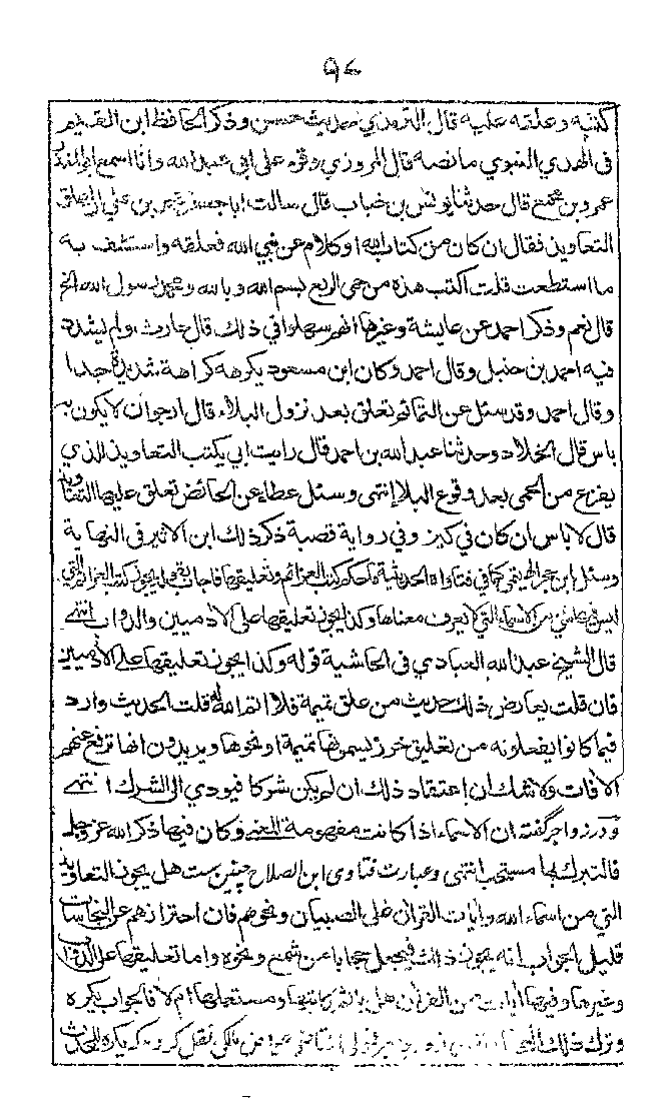 ٩٤
كتبه وعلقه عليه قال الترمذي حديث حسن وذكر الحافظ ابن القيم
في الهدي النبوي ما نصه قال المروزي وقرء على ابي عبد الله وانا اسمع ابو المنذر
عمرو بن مجمع قال حدثنا يونس بن خباب قال سالت ابا جعفر محمد بن علي ان اعلق
التعاويذ فقال ان كان من كتاب الله او كلام عن نبي الله فعلقه واستشف به
ما استطعت قلت اكتب هذه من حمى الربع بسم الله وبالله ومحمد رسول الله الخ
قال نعم وذكر احمد عن عايشة وغيرها انهم سهلوا في ذلك قال حارث ولم يشدد
فيه احمد بن حنبل وقال احمد وكان ابن مسعود يكرهه كراهة شديدة جدا
وقال احمد وقد سئل عن التمائم تعلق بعد نزول البلاء قال ارجو ان لا يكون به
باس قال الخلاد وحدثنا عبد الله بن احمد قال رايت ابي يكتب التعاويذ للذي
يفزع من الحمى بعد وقوع البلا إنتهى وسئل عطاء عن الحائض تعلق عليها التعاويذ
قال لا باس ان كان في كيز وفي رواية قصبة ذكر ذلك ابن الاثير في النهاية
وسئل ابن حجر الهيتمي كما في فتاواه الحديثية ما حكم كتب العزائم وتعليقها فاجاب بقوله يجوز كتب العزائم التي
ليس فيها شئ من الاسماء التي لا يعرف معناها وكذا يجوز تعليقها على الادميين والدواب انتهى
قال الشيخ عبد الله العبادي في الحاشية قوله وكذا يجوز تعليقها على الادميين
فان قلت يعارض ذلك حديث من علق تميمة فلا اتم الله له قلت الحديث وارد
فيما كانوا يفعلونه من تعليق خرز يسمونها تميمة او نحوها ويريدون انها ترفع عنهم
الافات ولا شك ان إعتقاد ذلك ان لم يكن شركا فيودي الى الشرك انتهى
ودر زواجر گفته ان الاسماء اذا كانت مفهومة المعنى وكان فيها ذكر الله عز وجل
فالتبرك بها مستحب انتهى وعبارت فتاوى ابن الصلاح چنين ست هل يجوز التعاويذ
التي من اسماء الله وايات القران على الصبيان ونحوهم فان احترازهم عن النجاسات
قليل الجواب انه يجوز ذلك فيجعل حجابا من شمع ونحوه واما تعليقها على الدواب
وغيرها وفيها ايات من القران هل ياثم كاتبها ومستعملها ام لا فالجواب يكره
وترك ذلك نقل كرده كه يكره للمحدث